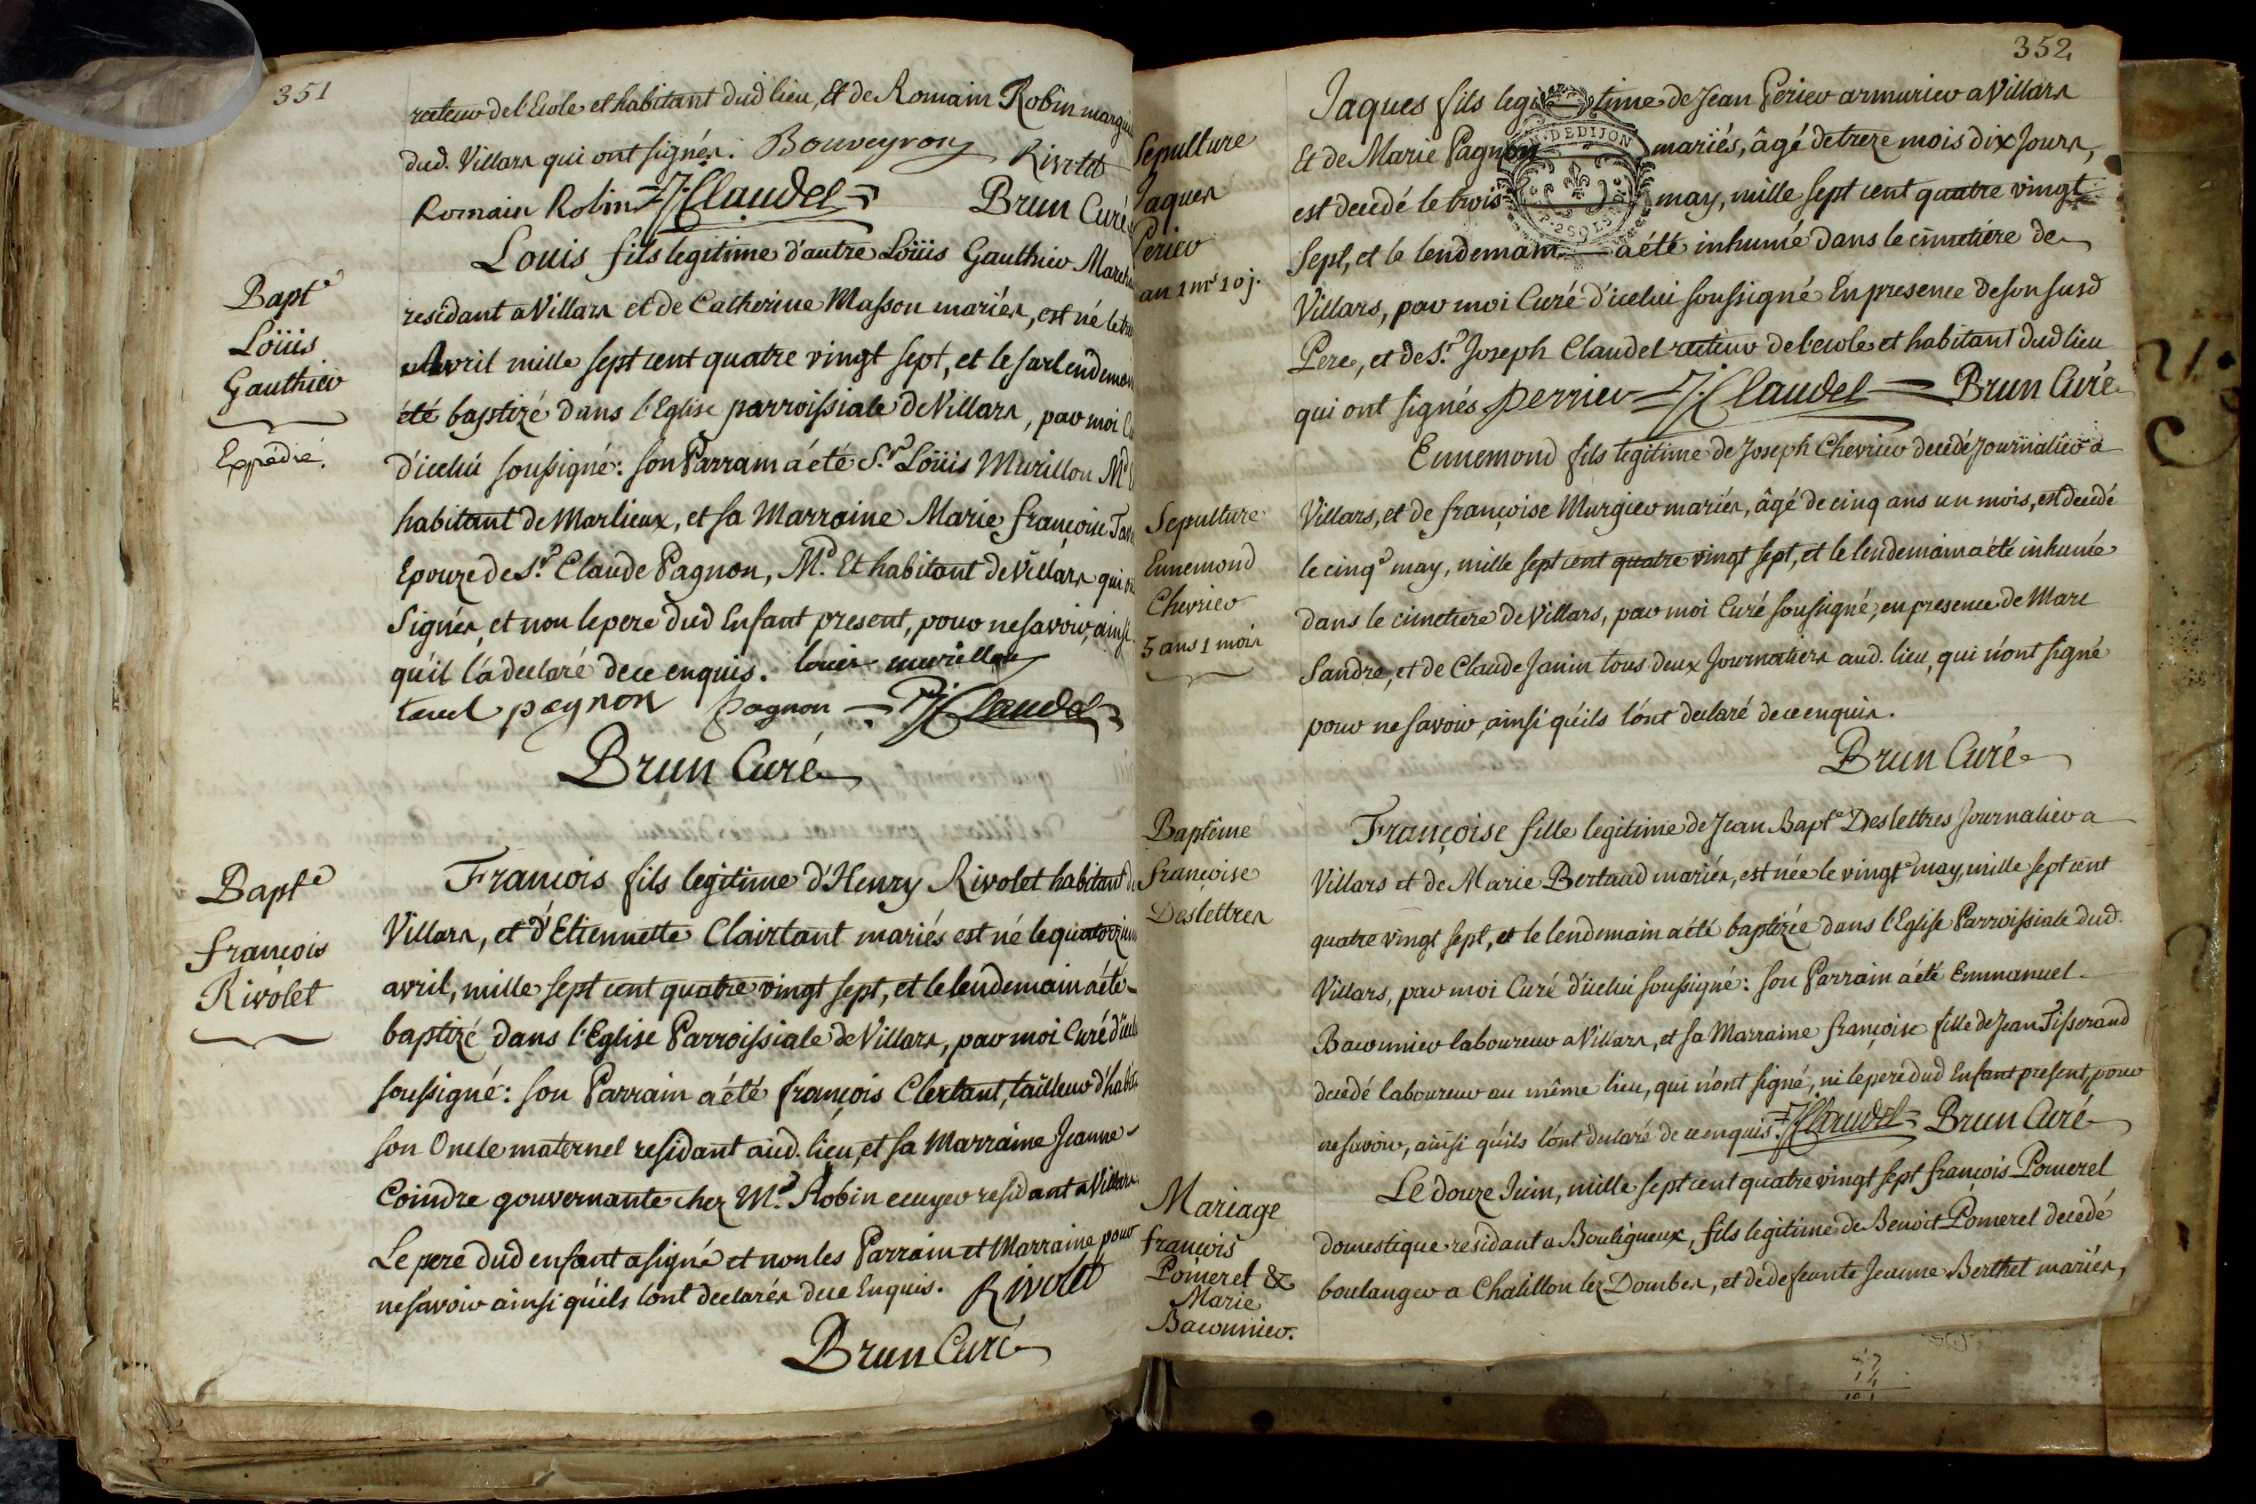 351
recteur de l'Ecole et habitant dud lieu, Et de Romain Robin
dud. Villars qui ont signés. Bouveyron Rivolet
Romain Robin J. Claudel Brun Curé
Bapt.e
Loüis
Gauthier
Expédié.
Louis fils legitime d'autre Loüis Gauthier
residant a Villars et de Catherine Masson mariés, est né le
Avril mille sept cent quatre vingt sept, et le surlendemain
été baptizé dans l'Eglise parroissiale de Villars, par moi
d'icelui soussigné: son Parrain a été S.r Loüis Murillon M.d
habitant de Marlieux, et sa Marraine Marie françoise
Epouze de S.r Claude Pagnon, M.d Et habitant de Villars qui
Signés, et non le pere dud Enfant present, pour ne savoir, ainsi
qu'il l'a declaré de ce enquis. louis murillon
pagnon Pagnon J. Claudel
Brun Curé
Bapt.e
françois
Rivolet
François fils legitime d'Henry Rivolet habitant
Villars, et d'Etiennette Clairtant mariés est né le quatorzieme
avril, mille sept cent quatre vingt sept, et le lendemain a été
baptizé dans l'Eglise Parroissiale de Villars, par moi Curé d'icelui
soussigné: son Parrain a été françois Clertant, tailleur d'habits
son Oncle maternel residant aud. lieu, et sa Marraine Jeanne
Coindre gouvernante chez M.r Robin ecuyer residant a Villars.
Le pere dud enfant a signé et non les Parrain et Marraine pour
ne savoir ainsi qu'ils l'ont declarés de ce Enquis. Rivolet
Brun Curé
352
Sepulture
Jaques
Perier
an 1 m.s 10 j.
Jaques fils legitime de Jean Perier armurier a Villars
Et de Marie Pagnon mariés, âgé de treze mois dix Jours,
est decedé le trois may, mille sept cent quatre vingt
Sept, et le lendemain a été inhumé dans le cimetiere de
Villars, par moi Curé d'icelui soussigné En presence de son susd
Pere, et de S.r Joseph Claudel recteur de l'ecole et habitant dud lieu
qui ont signés perrier J. Claudel Brun Curé
Sepulture
Ennemond
Chevrier
5 ans 1 mois
Ennemond fils legitime de Joseph Chevrier decedé Journalier a
Villars, et de françoise Murgier mariés, âgé de cinq ans un mois, est decedé
le cinq.e may, mille sept cent quatre vingt sept, et le lendemain a été inhumé
dans le cimetiere de Villars, par moi Curé soussigné, en presence de Marc
Sandre, et de Claude Janin tous deux Journaliers aud. lieu, qui n'ont signé
pour ne savoir, ainsi qu'ils l'ont declaré de ce enquis.
Brun Curé
Baptême
françoise
Deslettres
Françoise fille legitime de Jean Bapt.e Deslettres Journalier a
Villars et de Marie Bertaud mariés, est née le vingt.e may, mille sept cent
quatre vingt sept, et le lendemain a été baptizée dans l'Eglise Parroissiale dud.
Villars, par moi Curé d'icelui soussigné: son Parrain a été Emmanuel
Baconnier laboureur a Villars, et sa Marraine françoise fille de Jean Tisserand
decedé laboureur au même lieu, qui n'ont signé, ni le pere dud Enfant present, pour
ne savoir, ainsi qu'ils l'ont declaré de ce enquis. J. Claudel Brun Curé
Mariage
françois
Pomerel &
Marie
Baconnier.
Le douze Juin, mille sept cent quatre vingt sept françois Pomerel
domestique residant a Bouligneux, fils legitime de Benoit Pomerel decedé
boulanger a Chatillon lez Dombes, et de defeunte Jeanne Berthet mariés,